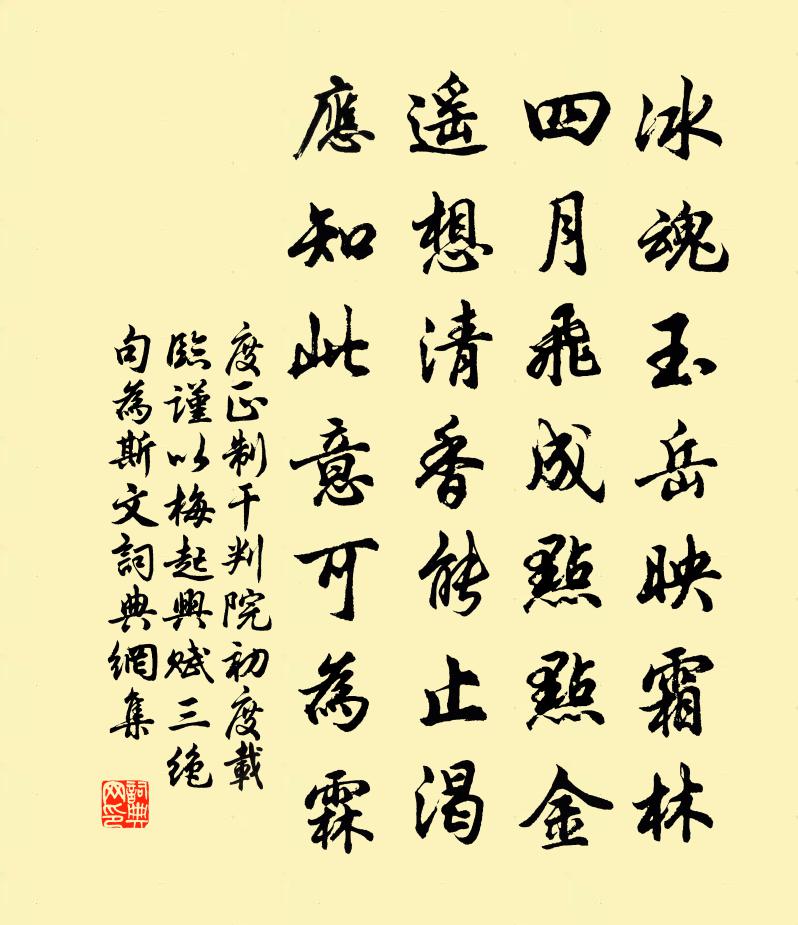 冰魂玉岳映霜林
四月飛成點點金
遥想清香能止渴
應知此意可為霖
度正制干判院初度載
臨謹以梅起興賦三绝
句為斯文詞典網集
詞典网印